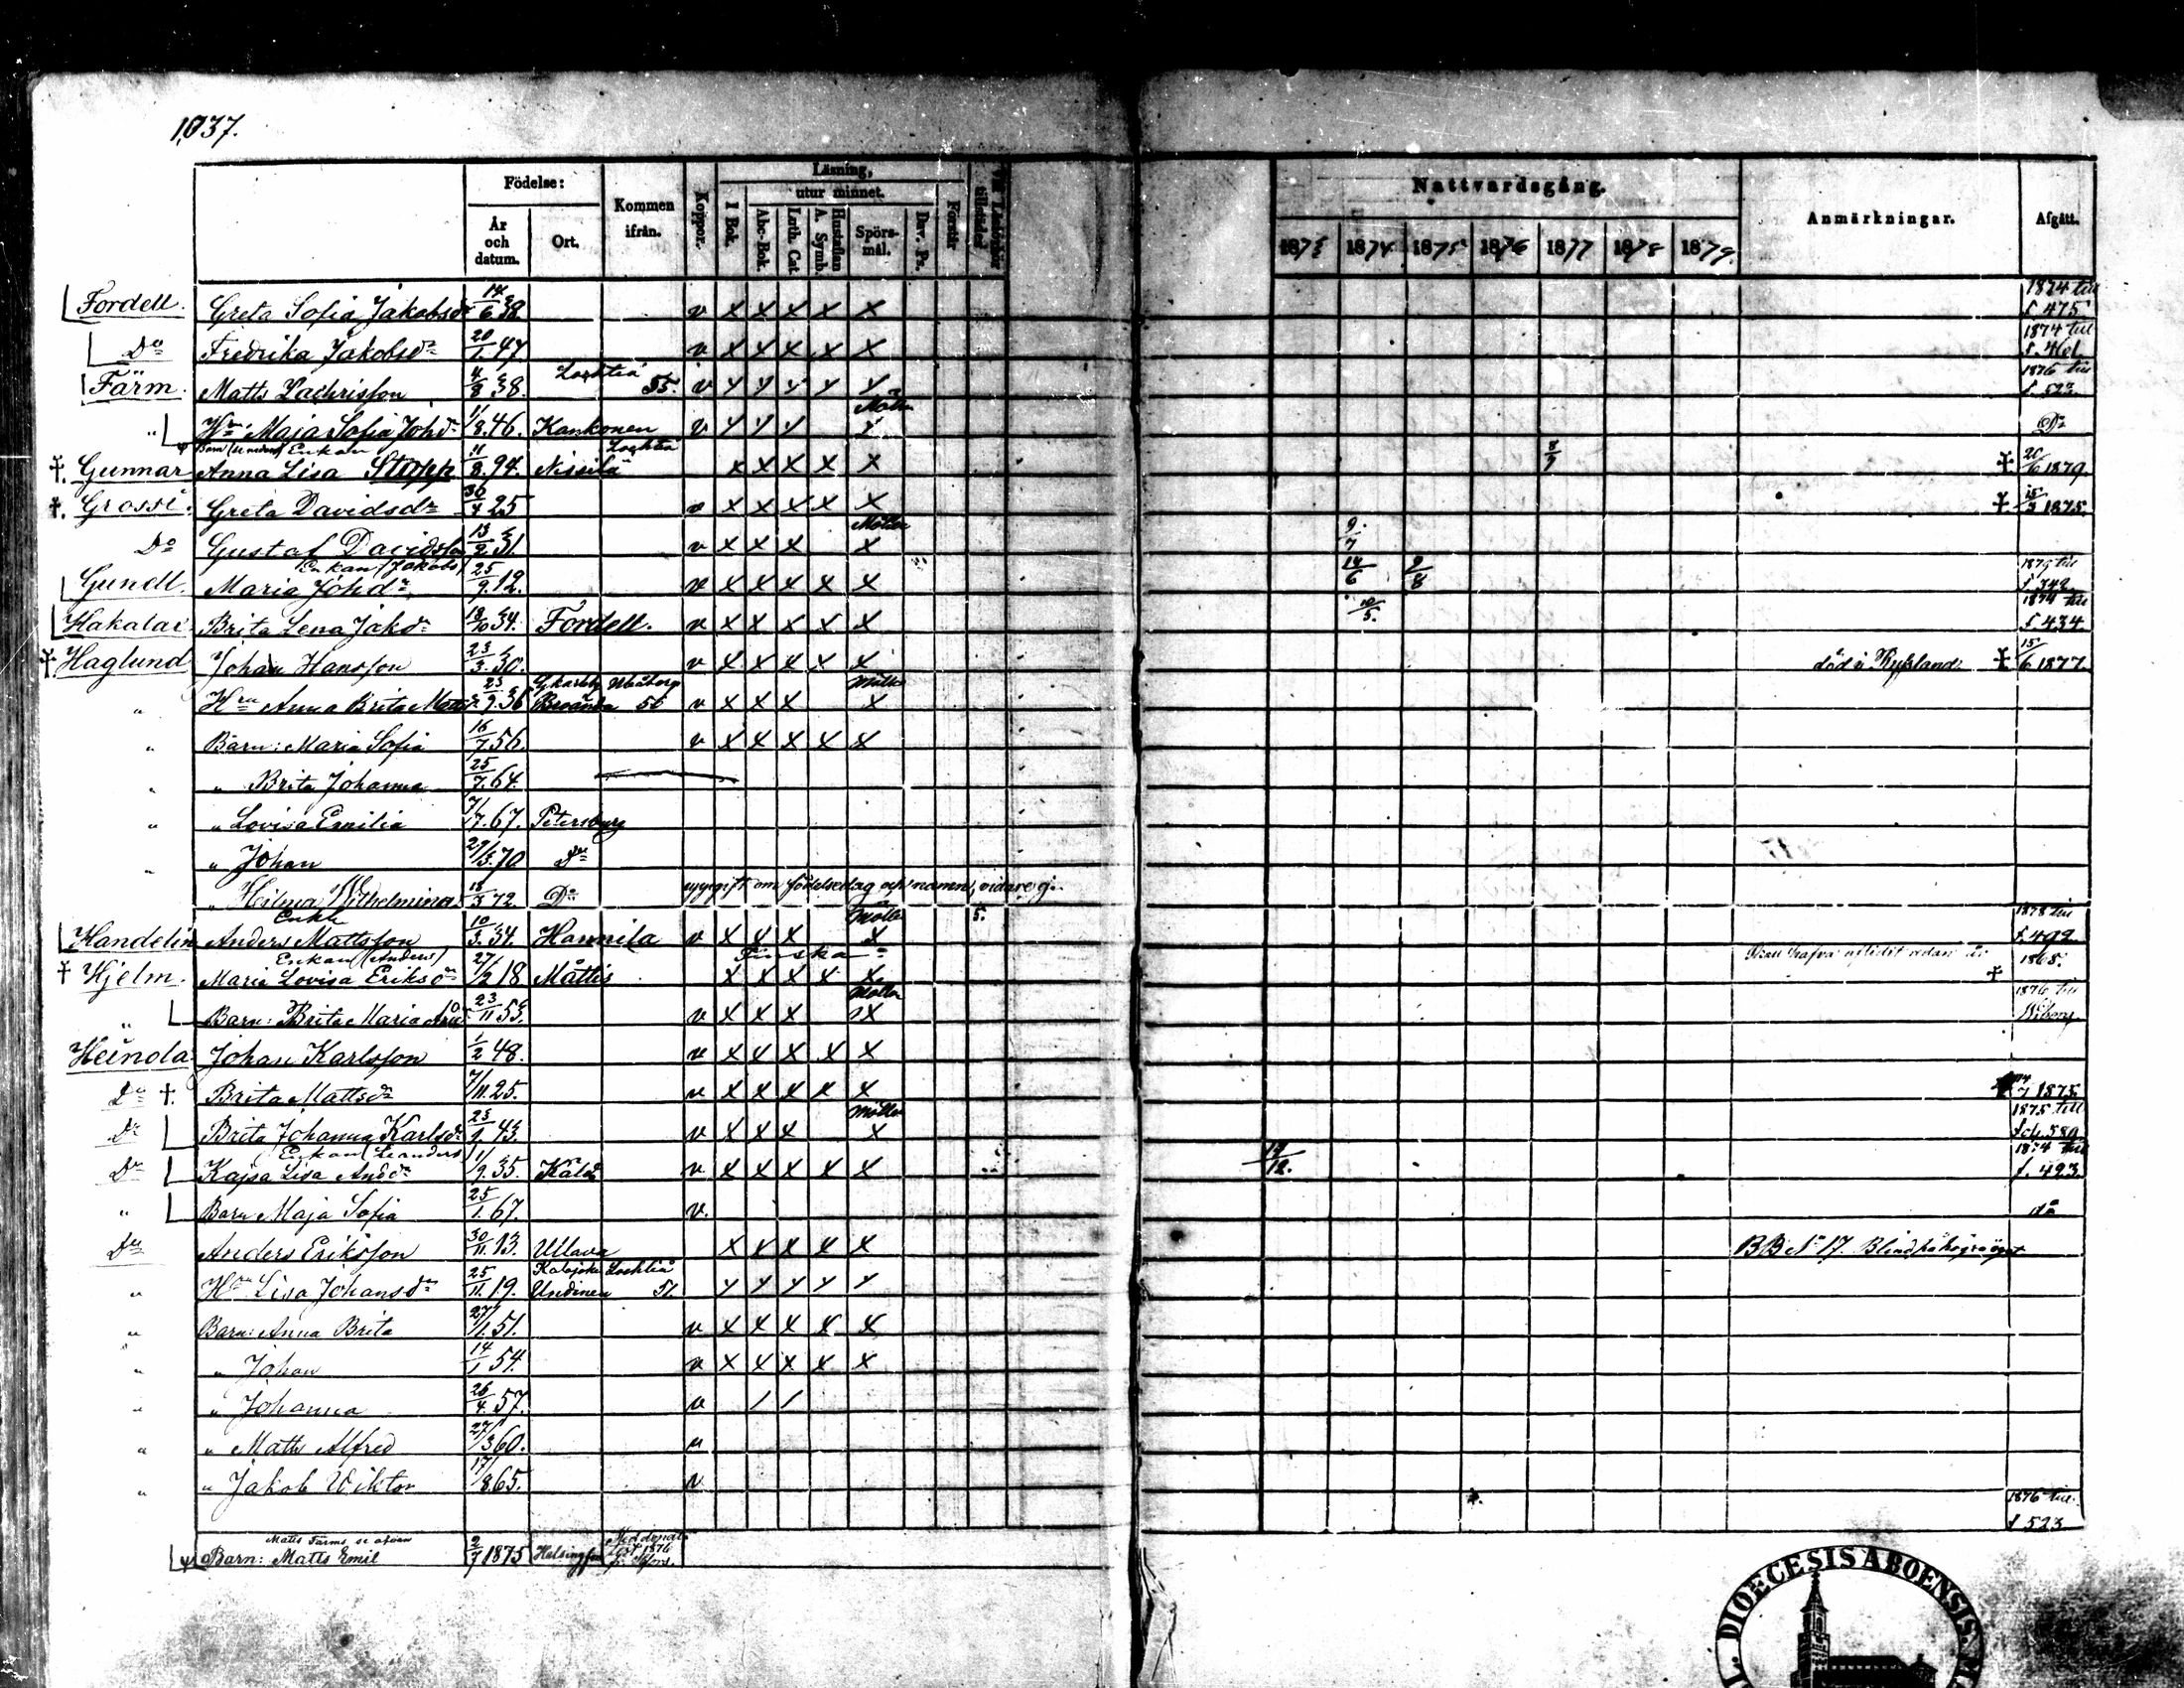 1037.
Födelse:
År och datum.
Ort.
Kommen ifrån.
Koppor.
Läsning,
I Bok.
utur minnet.
Abc-Bok.
Luth. Cat.
Hustaflan A. Symb.
Spörsmål.
Dav. Ps.
Förstår
Nattvardsgång.
1873 1874 1875 1876 1877 1878 1879.
Anmärkningar.
Afgått.
Fordell. Greta Sofia Jakobsdr 14/6 38 v x x x x x 1874 till f. 475
Do Fredrika Jakobsdr 20/1. 47. v x x x x x 1874 till
Färm. Matts Zachrisson 4/8 38. Lochteå 55. v y y y y y 1876 till f. 523.
" Maja Sofia Johdr 11/8. 46. Kankonen v y y y y Do
Enkan Lochteå
† Gunnar Anna Lisa Stapp 11/8. 94. Nissilä x x x x x 8/7 † 20/6 1879.
†. Grossi. Greta Davidsdr 30/4 25 v x x x x x † 15/3 1875.
Do Gustaf Davidsson 13/2. 31. v x x x x 9/7
Enkan (Jakobs)
Gunell. Maria Johdr 25/9. 12. v x x x x x 14/6 9/8 1879 till f. 742
Hakalax Brita Lena Jakdr 18/10 34. Fordell. v x x x x x 10/5. 1874 till f. 434.
† Haglund Johan Hansson 23/3. 30. v x x x x x död i Ryssland. † 15/6 1877.
" Hru Anna Brita 23/9. 36 56 v x x x x
" Barn: Maria Sofia 16/7 56. v x x x x x
" " Brita Johanna 25/7. 64.
" " Lovisa Emilia 7/7. 67. Petersburg
" " Johan 29/5. 70 Do
" Hilma Wilhelmina 18/3 72. Do uppgift om födelsedag och namn,
Enkl
Handelin Anders Mattsson 10/3. 34. Hannila v x x x x 5. 1878 till f. 492
Enkan (Anders) Finska
† Hjelm. Maria Lovisa Eriksdr 27/2 18 Mattis x x x x x Skall hafva aflidit redan år 1868. †
" Barn: Brita Maria 23/11 53. v x x x x 1876 till
Heinola Johan Karlsson 1/2 48. v x x x x x
Do †. Brita Mattsdr 7/11. 25. v x x x x x 1875.
Do Brita Johanna Karlsdr 23/1. 43. v x x x x 1875 till fol. 589
Enkan Leanders
Do Kajsa Lisa Anddr 11/9. 35. v x x x x x 14/12. 1874 till f. 423.
" Barn Maja Sofia 25/1. 67. v.
Do Anders Eriksson 30/11. 13. Ullava x x x x x BB No 17. Blind på högra ögat
" Hru Lisa Johansdr 25/11. 19. Undinen Lochteå 51. y y y y y
" Barn: Anna Brita 27/1. 51. v x x x x x
" " Johan 14/1 54. v x x x x x
" " Johanna 26/4. 57. v / /
" " Matts Alfred 27/3 60. v
" " Jakob Wiktor 17/8. 65. v
1876 till f. 523
Matts Färms se ofvan
Barn: Matts Emil 2/7 1875 Helsingfors
DIOECESIS ABOENSIS